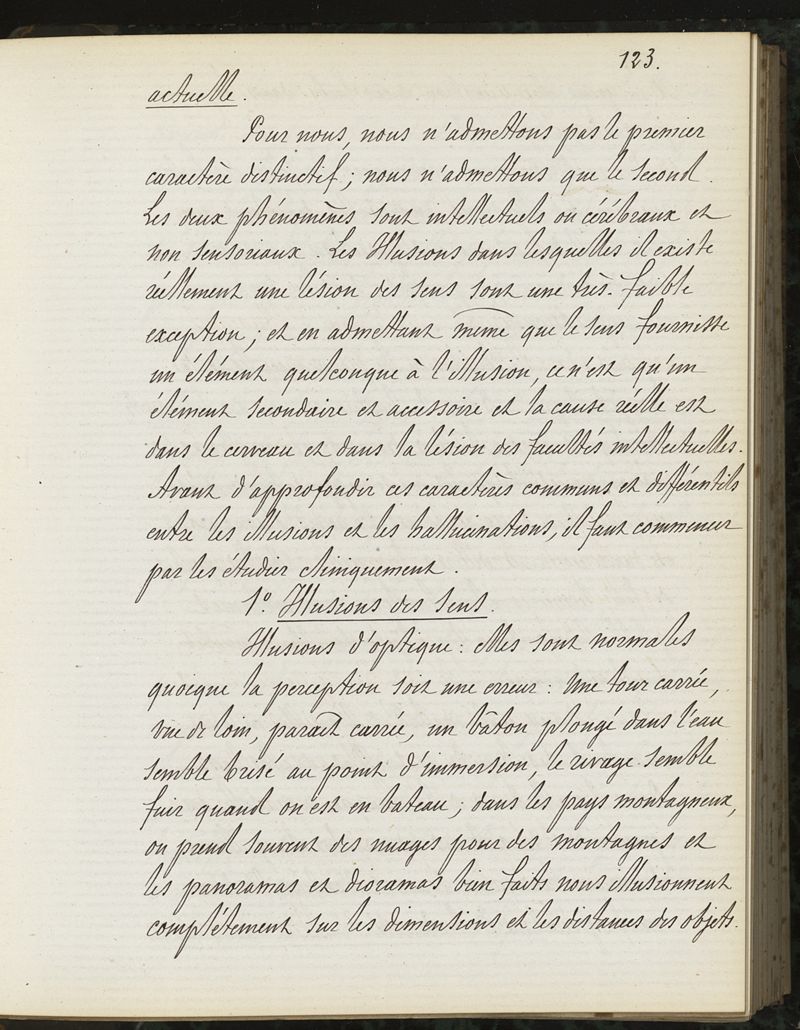 123.
actuelle.
Pour nous, nous n'admettons pas le premier
caractère distinctif; nous n'admettons que le second.
Les deux phénomènes sont intellectuels ou cérébraux et
non sensoriaux. Les Illusions dans lesquelles il existe
réellement une lésion des sens sont une très-faible
exception; et en admettant même que le sens fournisse
un élément quelconque à l'illusion, ce n'est qu'un
élément secondaire et accessoire et la cause réelle est
dans le cerveau et dans la lésion des facultés intellectuelles.
Avant d'approfondir ces caractères communs et différentiels
entre les illusions et les hallucinations, il faut commencer
par les étudier cliniquement.
1º. Illusions des sens.
Illusions d'optique: elles sont normales
quoique la perception soit une erreur: Une tour carrée,
vue de loin, parait carrée, un bâton plongé dans l'eau
semble brisé au point d'immersion, le rivage semble
fuir quand on est en bateau; dans les pays montagneux,
on prend souvent des nuages pour des montagnes et
les panoramas et dioramas bien faits nous illusionnent
complétement sur les dimensions et les distances des objets.